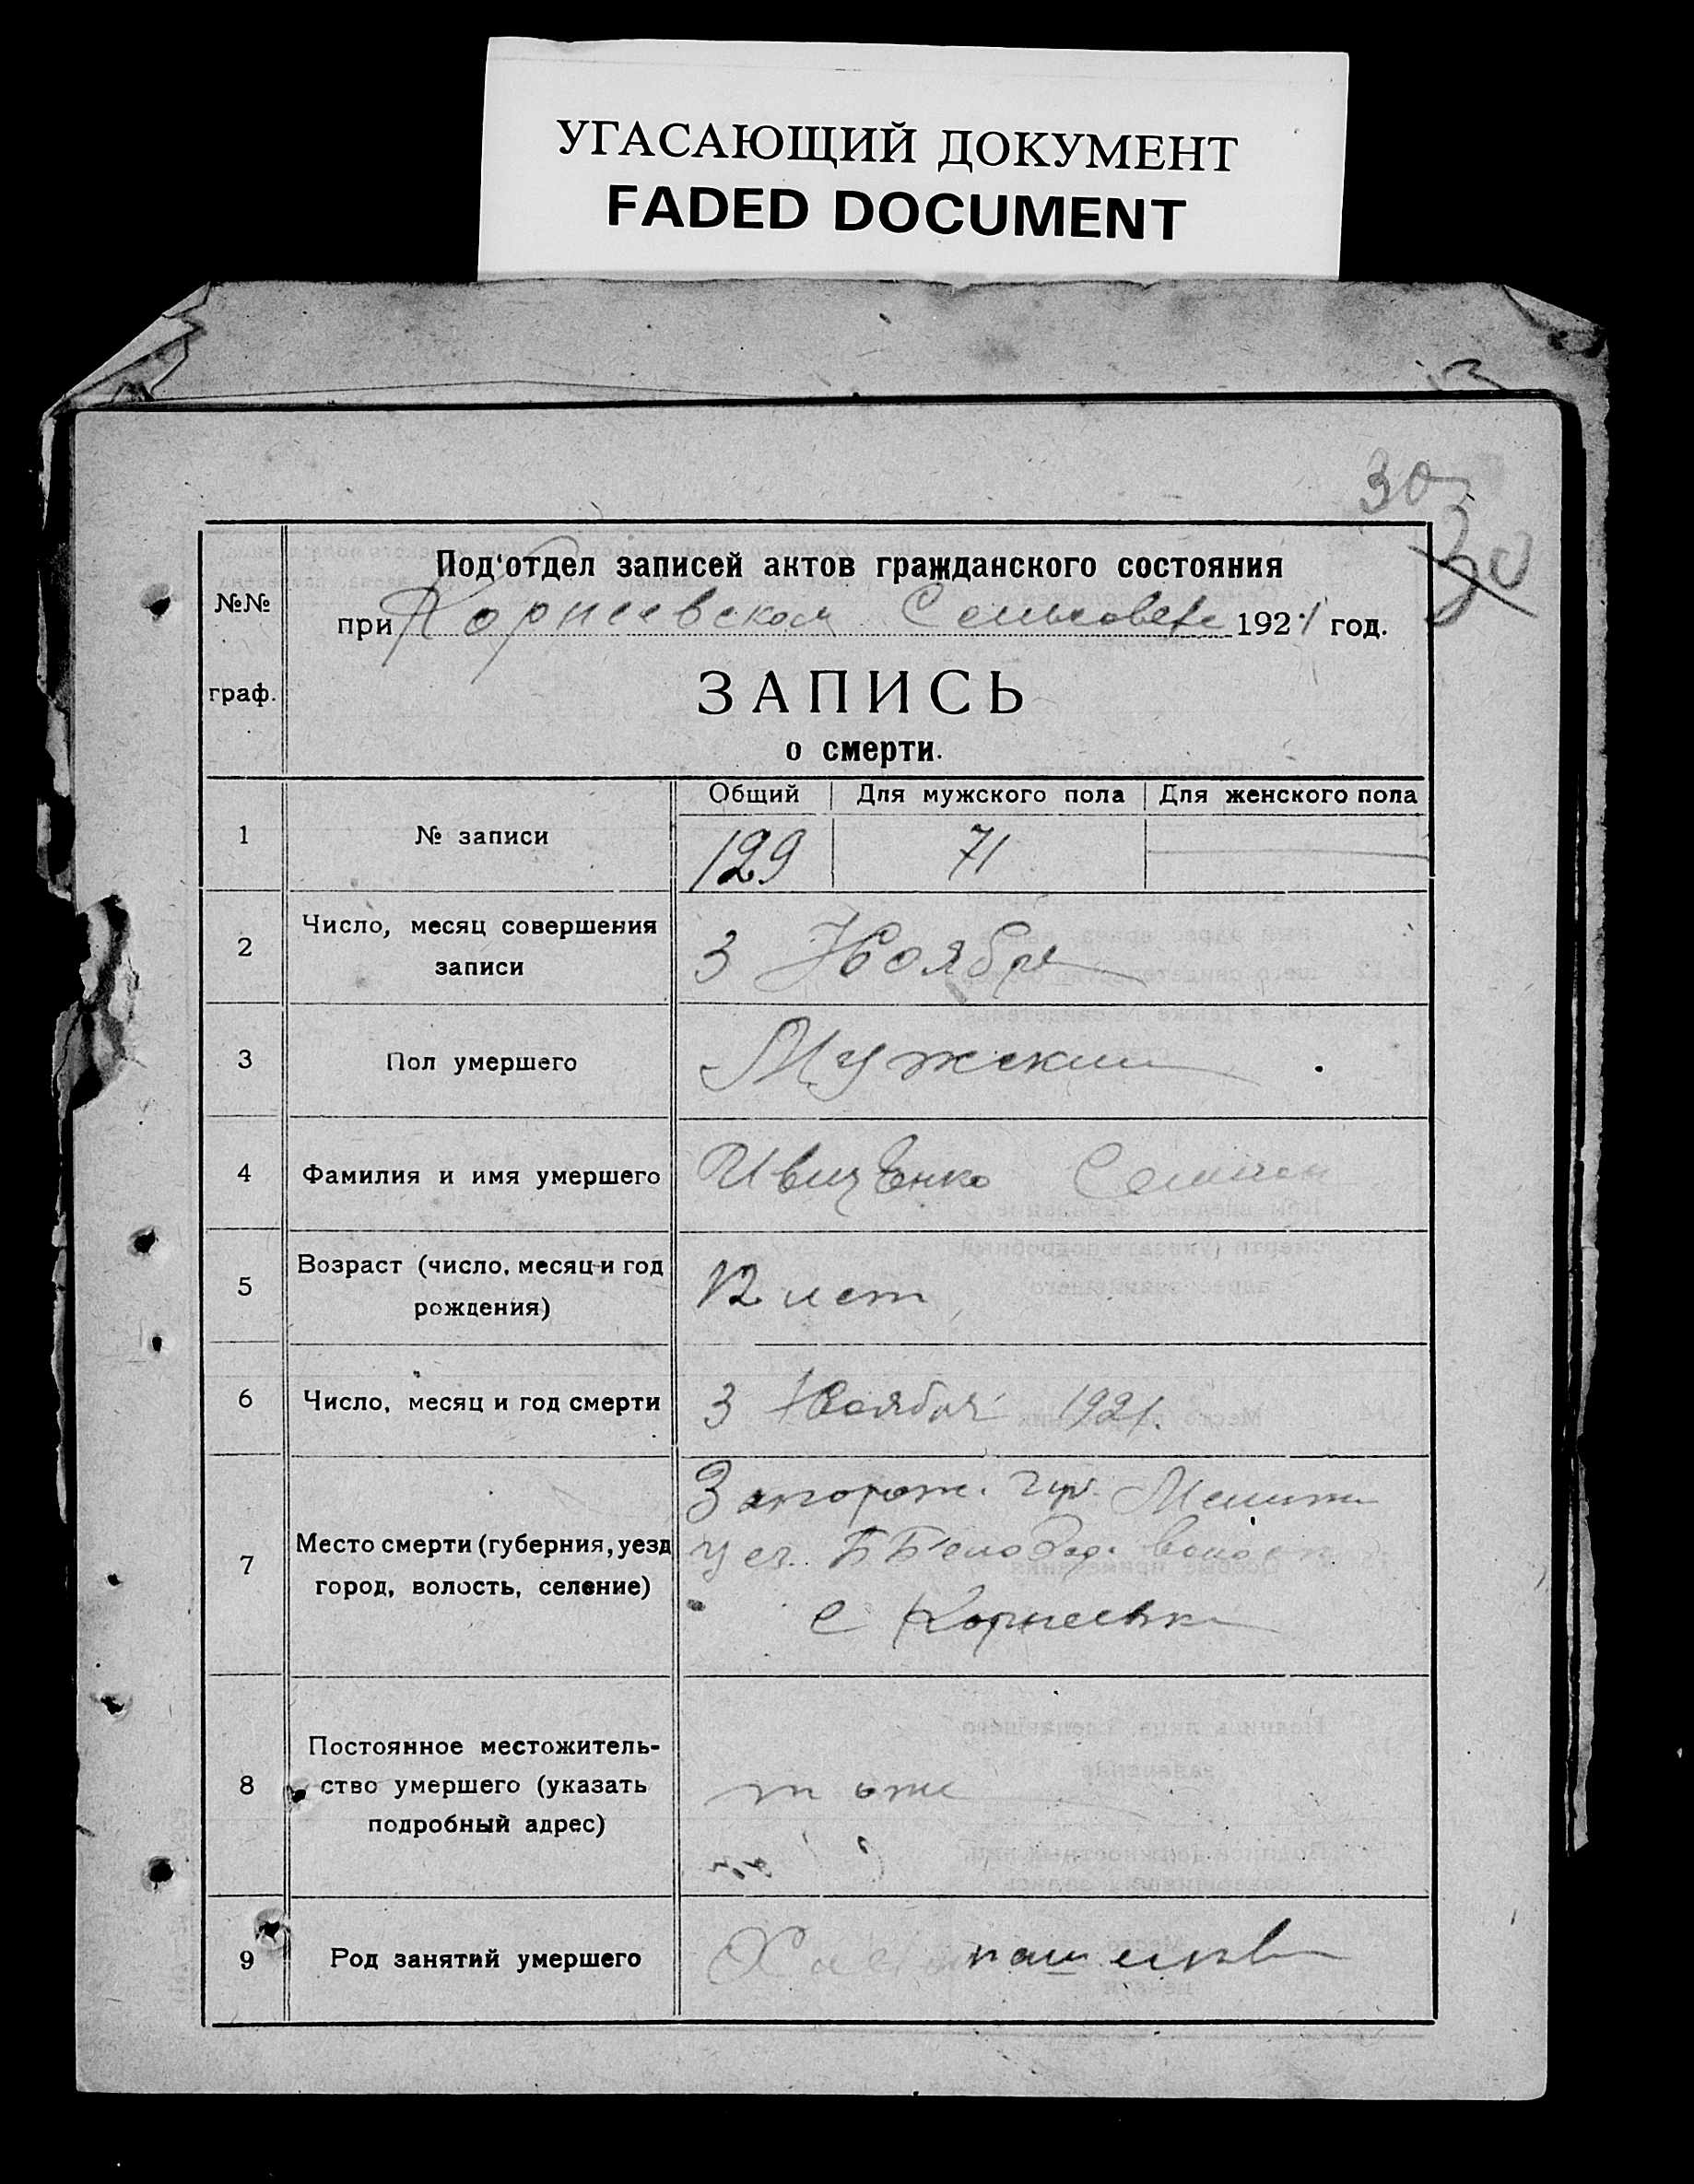 УГАСАЮЩИЙ ДОКУМЕНТ
FADED DOCUMENT
30
30
№№
граф.
Под‘отдел записей актов гражданского состояния
при Корнеевском Сельсовете 1921 год.
ЗАПИСЬ
о смерти.
Общий Для мужского пола Для женского пола
1 № записи 129 71
2 Число, месяц совершения
записи
3 Ноября
3 Пол умершего Мужский
4 Фамилия и имя умершего Ивченко Семион
5 Возраст (число, месяц и год
рождения)
12 лет
6 Число, месяц и год смерти 3 Ноября 1921.
7 Место смерти (губерния, уезд
город, волость, селение)
Запорож. губ. Мелит
уез. Б Белозер. волость
с Корнеевка
8 Постоянное местожитель-
ство умершего (указать
подробный адрес)
тоже
9 Род занятий умершего